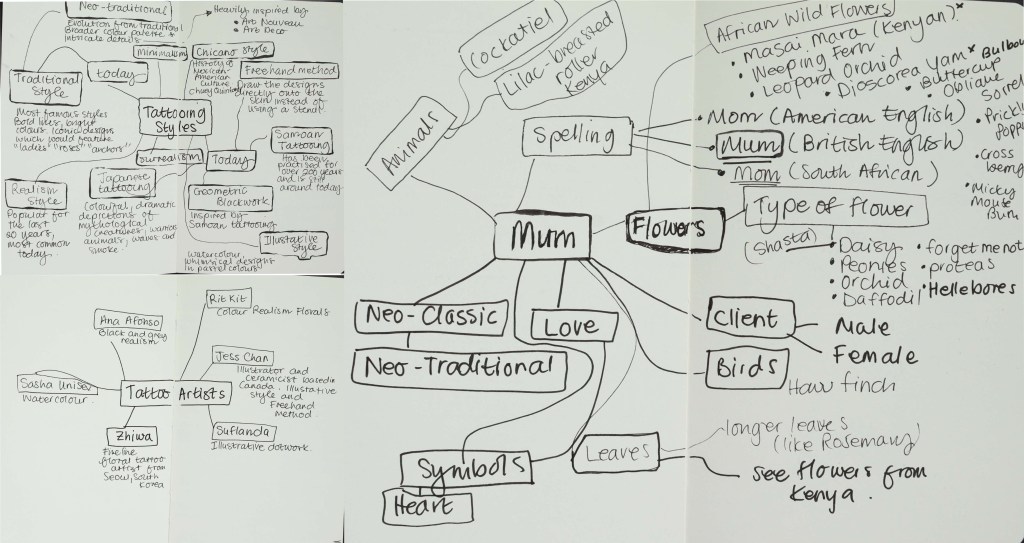 Neo-traditional
Evolution from traditional
Broader colour palette &
intricate details
Heavily inspired by:
• Art Nouveau
• Art Deco
Minimalism
Chicano style
History of
Mexican-
American
Culture
Freehand method
Draw the designs
directly onto the
skin instead of
using a stencil.
today
Traditional
Style
Most famous styles
Bold lines, bright
colours. Iconic designs
which would feature
"ladies" "roses" "anchors"
Tattooing
Styles
Samoan
Tattooing
Has been
practised for
over 200 years
and is still
around today.
surrealism
Today
Realism
Style
Popular for
the last
20 years,
most common
today.
Japanese
tattooing
Colourful, dramatic
depictions of
mythological
creatures, warriors
animals, waves and
smoke.
Geometric
Blackwork
Inspired by
Samoan tattooing
Illustrative
Style
Watercolour,
whimsical designs
in pastel colours
Rit Kit
Colour Realism Florals
Ana Afonso
Black and grey
realism
Jess Chan
Illustrator and
ceramicist based in
Canada. Illustrative
style and
Freehand
Method.
Sasha Unisex
Watercolour.
Tattoo Artists
Zhiwa
Fine line
floral tattoo
artist from
Seoul, South
Korea
Suflanda
Illustrative dotwork.
Cockatiel
Lilac-breasted
roller
Kenya
Animals
African Wild Flowers
• Masai Mara (Kenyan)*
• Weeping Fern
• Leopard Orchid
• Dioscorea Yam*
• Buttercup
• Bulbous
Oblique
Sorrel
• Prickly
Poppy
• cross
berry
• Micky
Mouse
Burn
Spelling
• Mom (American English)
• Mum (British English)
• Mom (South African)
Mum
Flowers
Type of flower
(Shasta)
• Daisy
• Peonies
• Orchid
• Daffodil
• forget me not
• proteas
• Hellebores
Neo-Classic
Neo-Traditional
Love
Client
Male
Female
Birds
Haw finch
Symbols
Heart
Leaves
longer leaves
(like Rosemary)
see flowers from
Kenya.